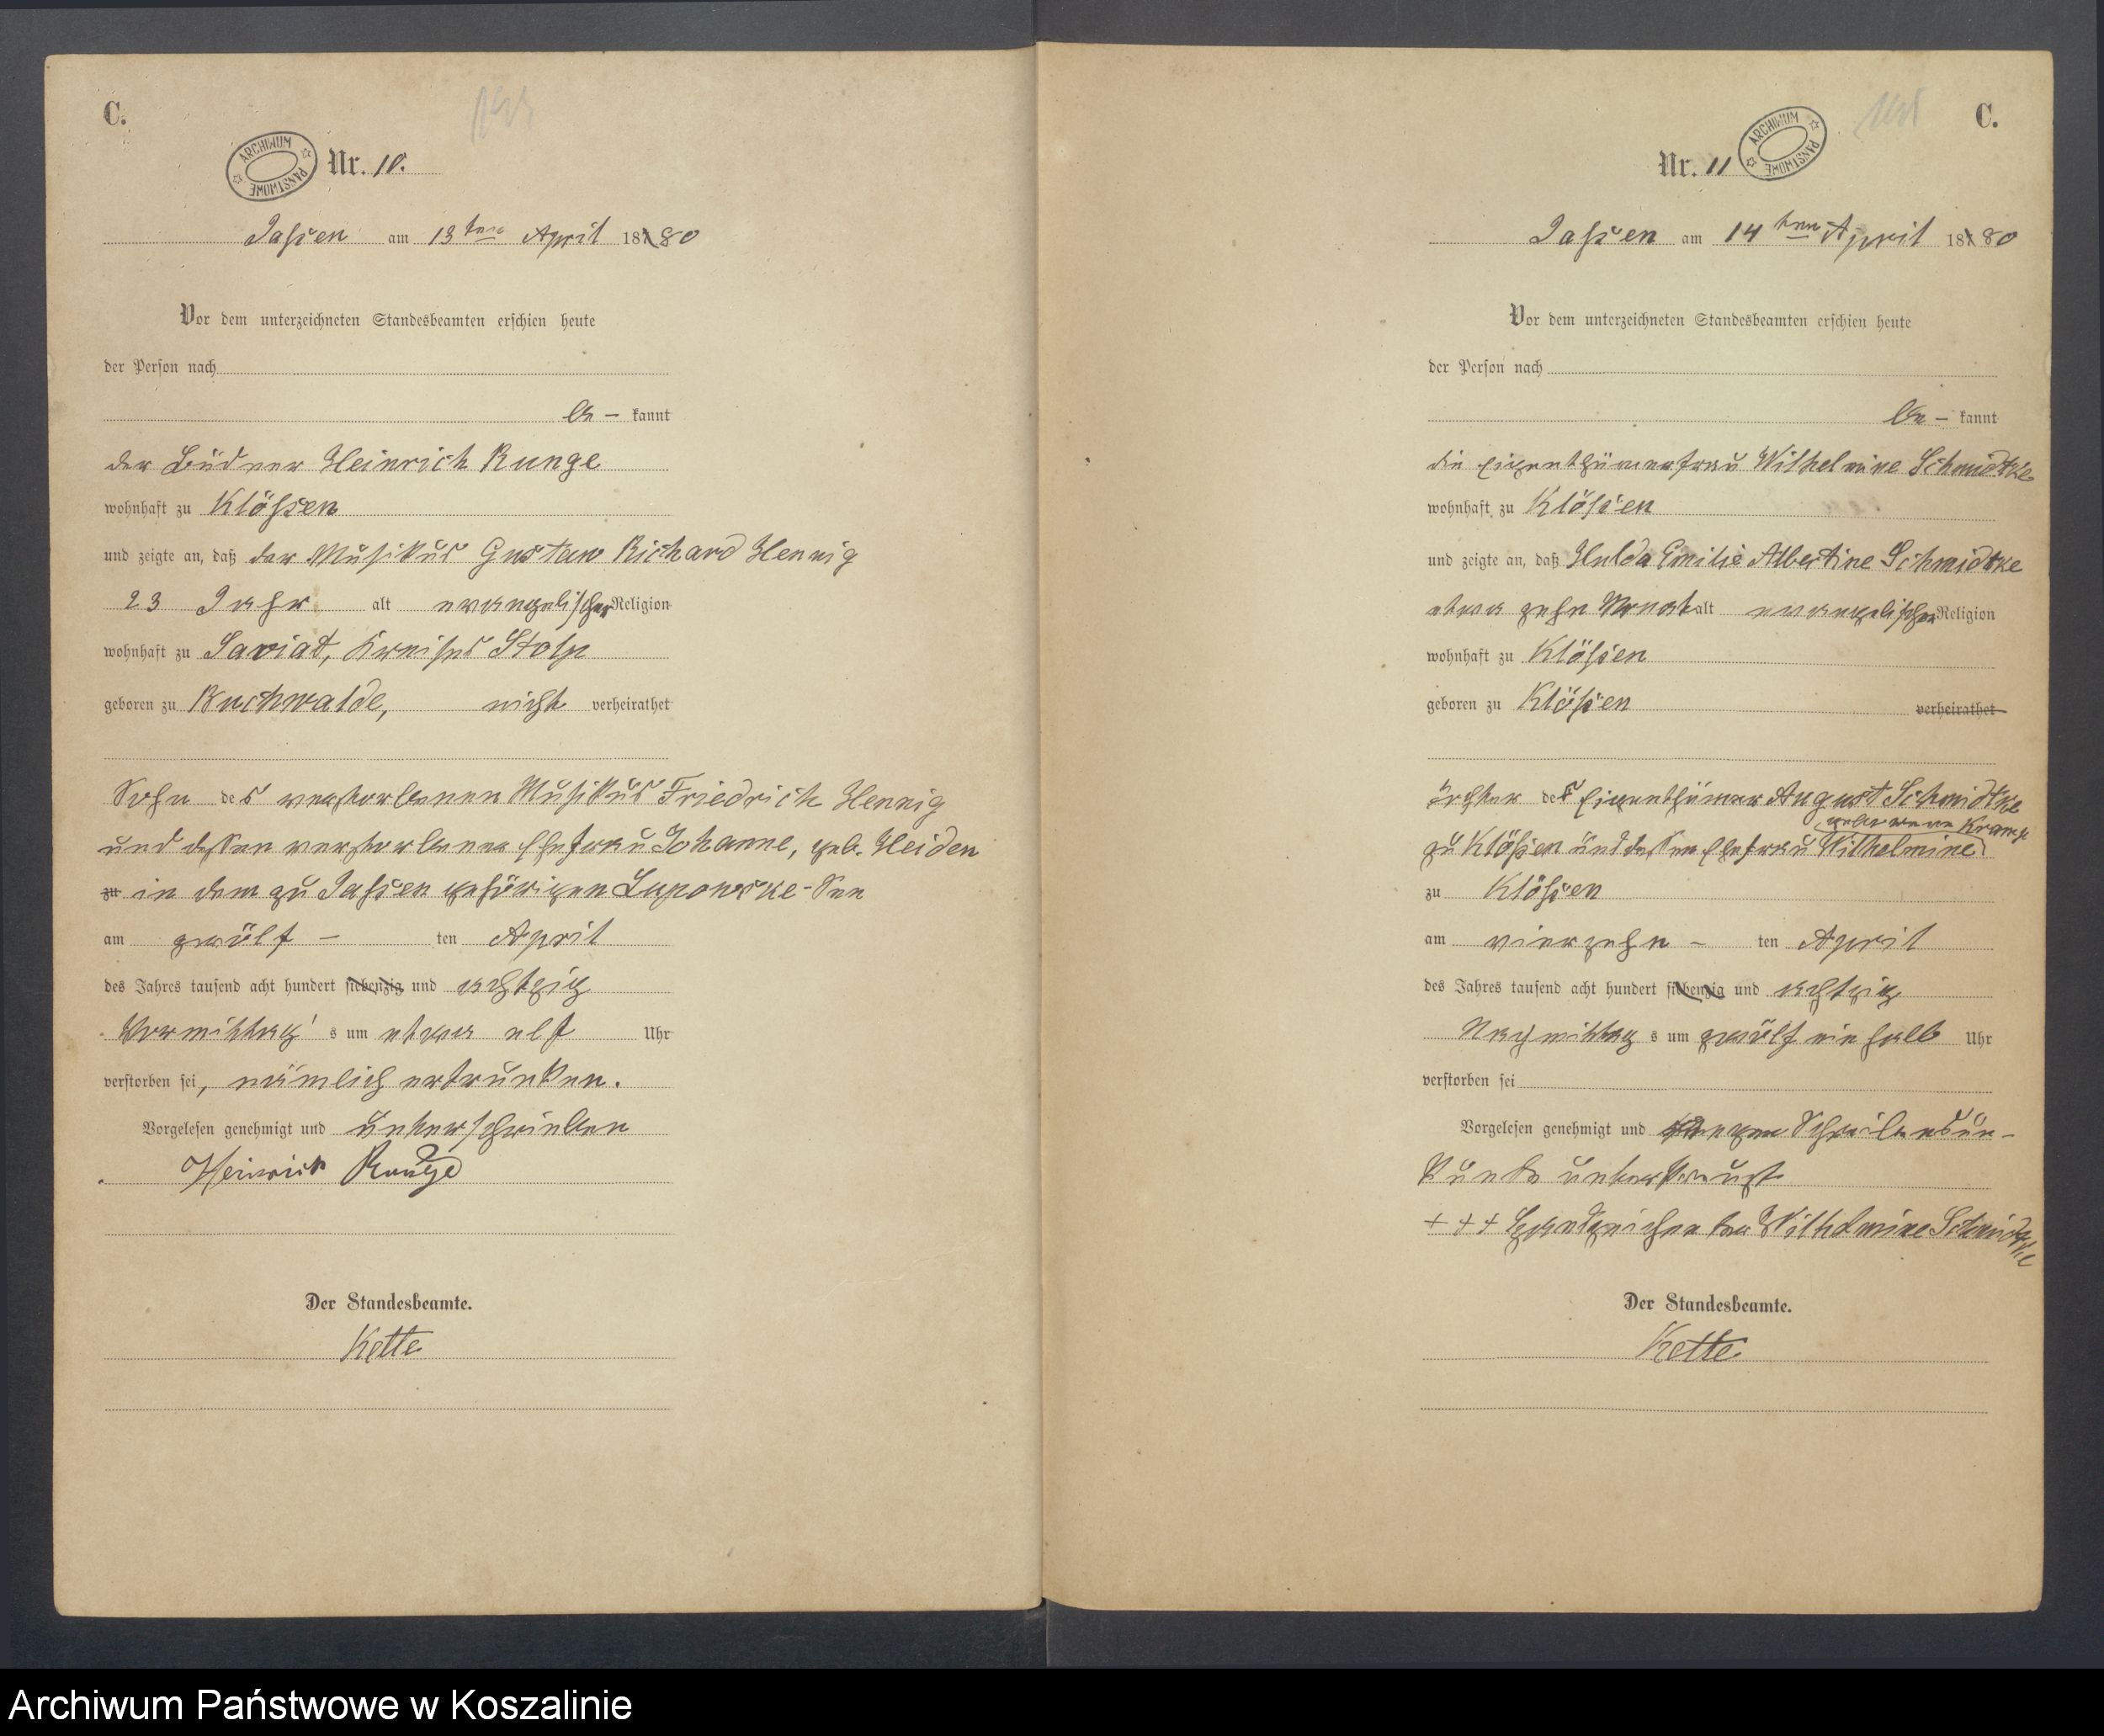 C.
ARCHIWUM PAŃSTWOWE
Nr. 10.
Jassen am 13ten April 1880
Vor dem unterzeichneten Standesbeamten erschien heute
der Person nach
be- kannt
der Büdner Heinrich Runge
wohnhaft zu Klössen
und zeigte an, daß der Musikus Gustav Richard Hennig
23 Jahr alt evangelischer Religion
wohnhaft zu Saviat, Kreises Stolp
geboren zu Buchwalde, nicht verheirathet
Sohn des verstorbenen Musikus Friedrich Hennig
und dessen verstorbener Ehefrau Johanne, geb. Heiden
zu in dem zu Jassen gehörigen Lupowske-See
am zwölf - ten April
des Jahres tausend acht hundert siebenzig und achtzig
Vormittag s um etwa elf Uhr
verstorben sei, nämlich ertrunken.
Vorgelesen genehmigt und unterschrieben
Heinrich Runge
Der Standesbeamte.
Kette
C.
ARCHIWUM PAŃSTWOWE
Nr. 11
Jassen am 14ten April 1880
Vor dem unterzeichneten Standesbeamten erschien heute
der Person nach
be- kannt
die Eigenthümerfrau Wilhelmine Schmidtke
wohnhaft zu Klössen
und zeigte an, daß Hulda Emilie Albertine Schmidtke
etwa zehn Monat alt evangelischer Religion
wohnhaft zu Klössen
geboren zu Klössen verheirathet
Tochter des Eigenthümer August Schmidtke
geborene
zu Klössen und dessen Ehefrau Wilhelmine
zu Klössen
am vierzehn - ten April
des Jahres tausend acht hundert siebenzig und achtzig
Nachmittag s um zwölf ein halb Uhr
verstorben sei
Vorgelesen genehmigt und wegen Schreibensun-
kunde unterkreuzt
+++ Handzeichen der Wilhelmine Schmidtke
Der Standesbeamte.
Kette
Archiwum Państwowe w Koszalinie